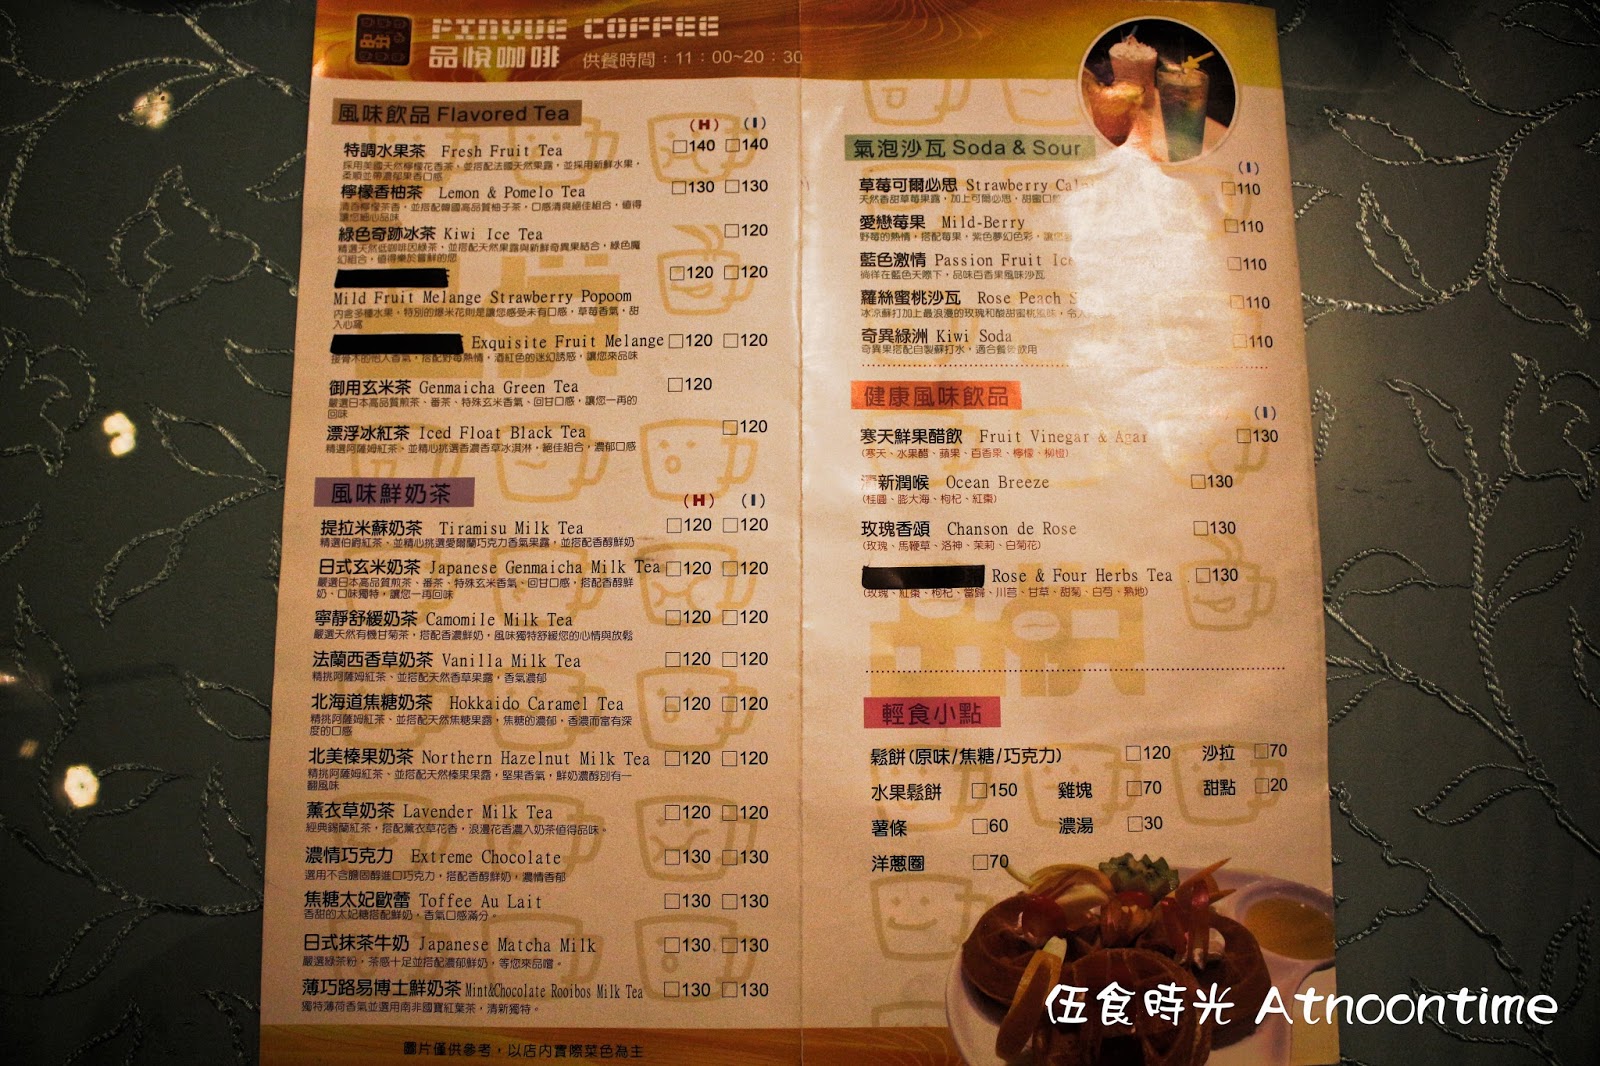 PINVUE COFFEE
品悅咖啡 供餐時間：11：00~20：30
風味飲品 Flavored Tea
(H) (I)
特調水果茶 Fresh Fruit Tea □140 □140
採用英國天然檸檬花香茶，並搭配法國天然果露，並採用新鮮水果，
柔順並帶濃郁果香口感
檸檬香柚茶 Lemon & Pomelo Tea □130 □130
清香檸檬茶香，並搭配韓國高品質柚子茶，口感清爽絕佳組合，值得
讓您細心品味
綠色奇跡冰茶 Kiwi Ice Tea □120
精選天然低咖啡因綠茶，並搭配天然果露與新鮮奇異果結合，綠色魔
幻組合，值得樂於嘗鮮的您
□120 □120
Mild Fruit Melange Strawberry Popoom
內含多種水果，特別的爆米花則是讓您感受未有口感，草莓香氣，甜
入心窩
Exquisite Fruit Melange □120 □120
接骨木的怡人香氣，搭配野莓熱情，酒紅色的迷幻誘惑，讓您來品味
御用玄米茶 Genmaicha Green Tea □120
嚴選日本高品質煎茶、番茶、特殊玄米香氣、回甘口感，讓您一再的
回味
漂浮冰紅茶 Iced Float Black Tea □120
精選阿薩姆紅茶、並精心挑選香濃香草冰淇淋，絕佳組合，濃郁口感
風味鮮奶茶
(H) (I)
提拉米蘇奶茶 Tiramisu Milk Tea □120 □120
精選伯爵紅茶、並精心挑選愛爾蘭巧克力香氣果露，並搭配香醇鮮奶
日式玄米奶茶 Japanese Genmaicha Milk Tea □120 □120
嚴選日本高品質煎茶、番茶、特殊玄米香氣、回甘口感，搭配香醇鮮
奶、口味獨特，讓您一再回味
寧靜舒緩奶茶 Camomile Milk Tea □120 □120
嚴選天然有機甘菊茶，搭配香濃鮮奶，風味獨特舒緩您的心情與放鬆
法蘭西香草奶茶 Vanilla Milk Tea □120 □120
精挑阿薩姆紅茶、並搭配天然香草果露，香氣濃郁
北海道焦糖奶茶 Hokkaido Caramel Tea □120 □120
精挑阿薩姆紅茶、並搭配天然焦糖果露，焦糖的濃郁，香濃而富有深
度的口感
北美榛果奶茶 Northern Hazelnut Milk Tea □120 □120
精挑阿薩姆紅茶、並搭配天然榛果果露，堅果香氣，鮮奶濃醇別有一
翻風味
薰衣草奶茶 Lavender Milk Tea □120 □120
經典錫蘭紅茶，搭配薰衣草花香，浪漫花香濃入奶茶值得品味。
濃情巧克力 Extreme Chocolate □130 □130
選用不含膽固醇進口巧克力，搭配香醇鮮奶，濃情香郁
焦糖太妃歐蕾 Toffee Au Lait □130 □130
香甜的太妃糖搭配鮮奶，香氣口感滿分。
日式抹茶牛奶 Japanese Matcha Milk □130 □130
嚴選綠茶粉，茶感十足並搭配濃郁鮮奶，等您來品嚐。
薄巧路易博士鮮奶茶 Mint&Chocolate Rooibos Milk Tea □130 □130
獨特薄荷香氣並選用南非國寶紅葉茶，清新獨特。
圖片僅供參考，以店內實際菜色為主
氣泡沙瓦 Soda & Sour
(I)
草莓可爾必思 Strawberry □110
天然香甜草莓果露，加上可爾必思，甜蜜口
愛戀莓果 Mild-Berry □110
野莓的熱情，搭配莓果，紫色夢幻色彩，讓您
藍色激情 Passion Fruit Ice □110
徜徉在藍色天際下，品味百香果風味沙瓦
蘿絲蜜桃沙瓦 Rose Peach S □110
冰涼蘇打加上最浪漫的玫瑰和酸甜蜜桃風味，令人
奇異綠洲 Kiwi Soda □110
奇異果搭配自製蘇打水，適合餐後飲用
健康風味飲品
(I)
寒天鮮果醋飲 Fruit Vinegar & Agar □130
(寒天、水果醋、蘋果、百香果、檸檬、柳橙)
清新潤喉 Ocean Breeze □130
(桂圓、膨大海、枸杞、紅棗)
玫瑰香頌 Chanson de Rose □130
(玫瑰、馬鞭草、洛神、茉莉、白菊花)
Rose & Four Herbs Tea □130
(玫瑰、紅棗、枸杞、當歸、川芎、甘草、甜菊、白芍、熟地)
輕食小點
鬆餅(原味/焦糖/巧克力) □120 沙拉 □70
水果鬆餅 □150 雞塊 □70 甜點 □20
薯條 □60 濃湯 □30
洋蔥圈 □70
伍食時光 Atnoontime